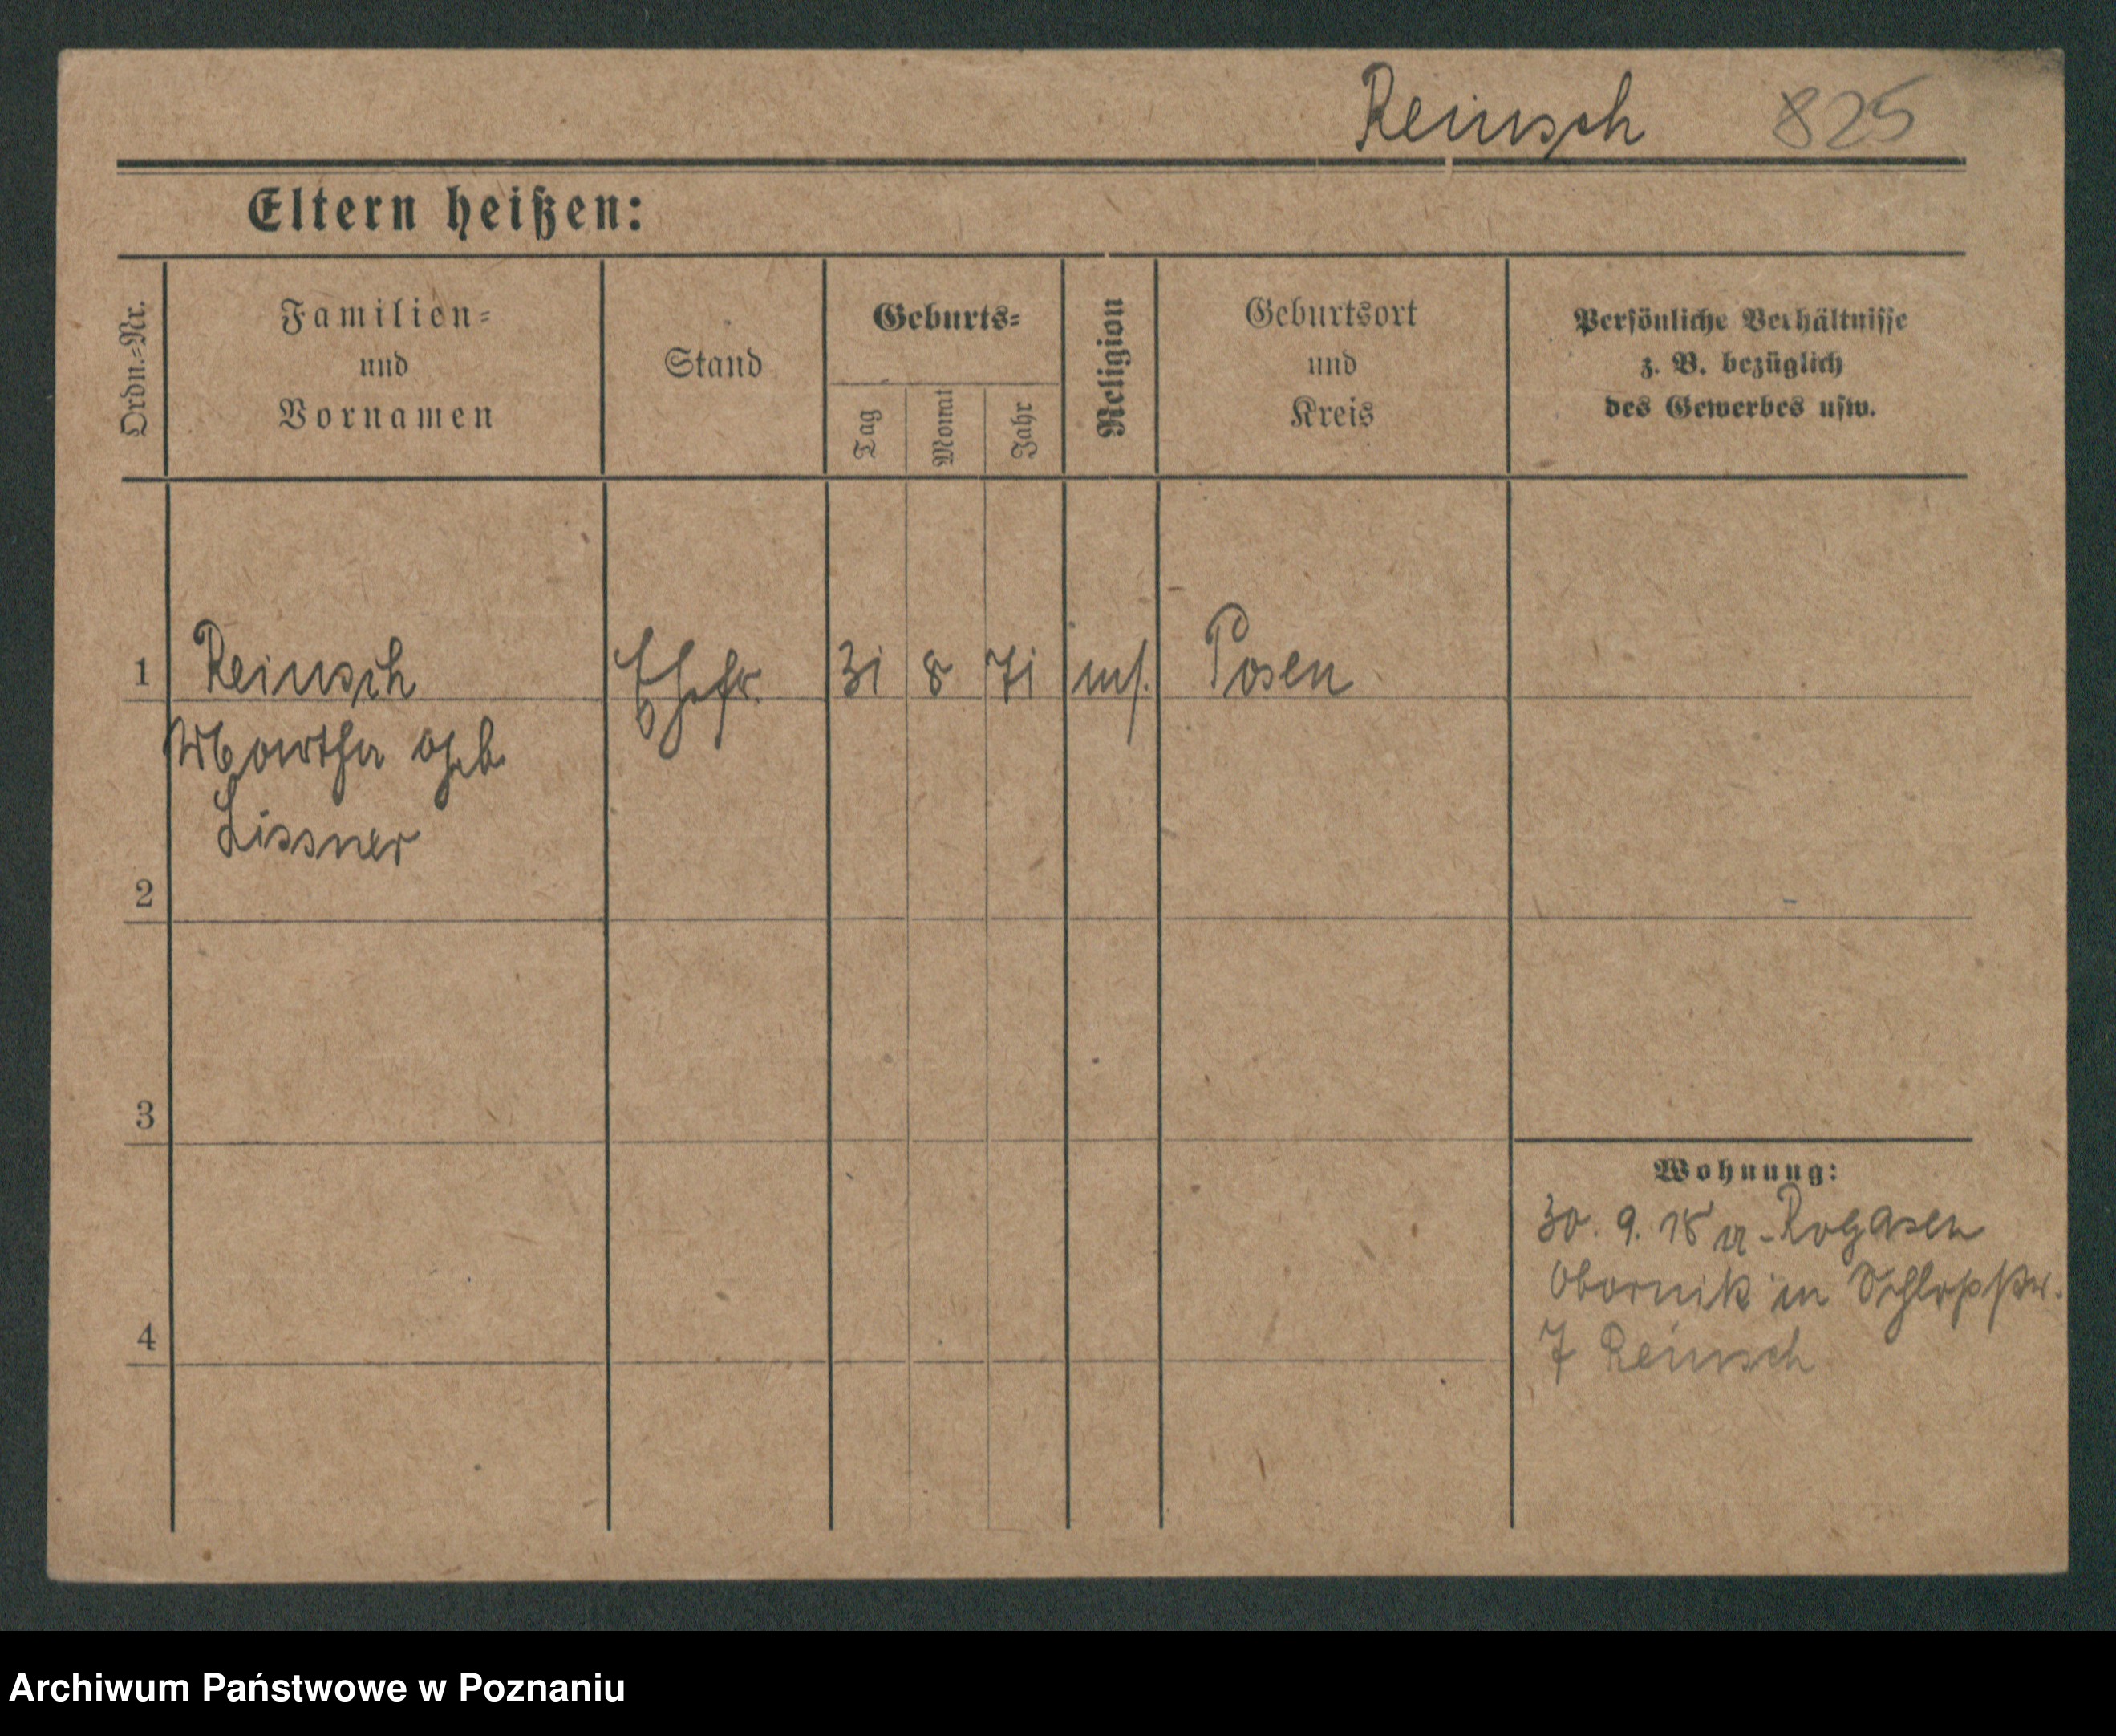 Reinsch 825
Eltern heißen:
Ordn.-Nr.
Familien-
und
Vornamen
Stand
Geburts-
Tag
Monat
Jahr
Religion
Geburtsort
und
Kreis
Persönliche Verhältnisse
z. B. bezüglich
des Gewerbes usw.
1 Reinsch Ehefr. 31 8 71 Posen
Martha geb.
Lissner
2
3
4
Wohnung:
30. 9. 18 a - Rogasen
Obornik in
7 Reinsch
Archiwum Państwowe w Poznaniu